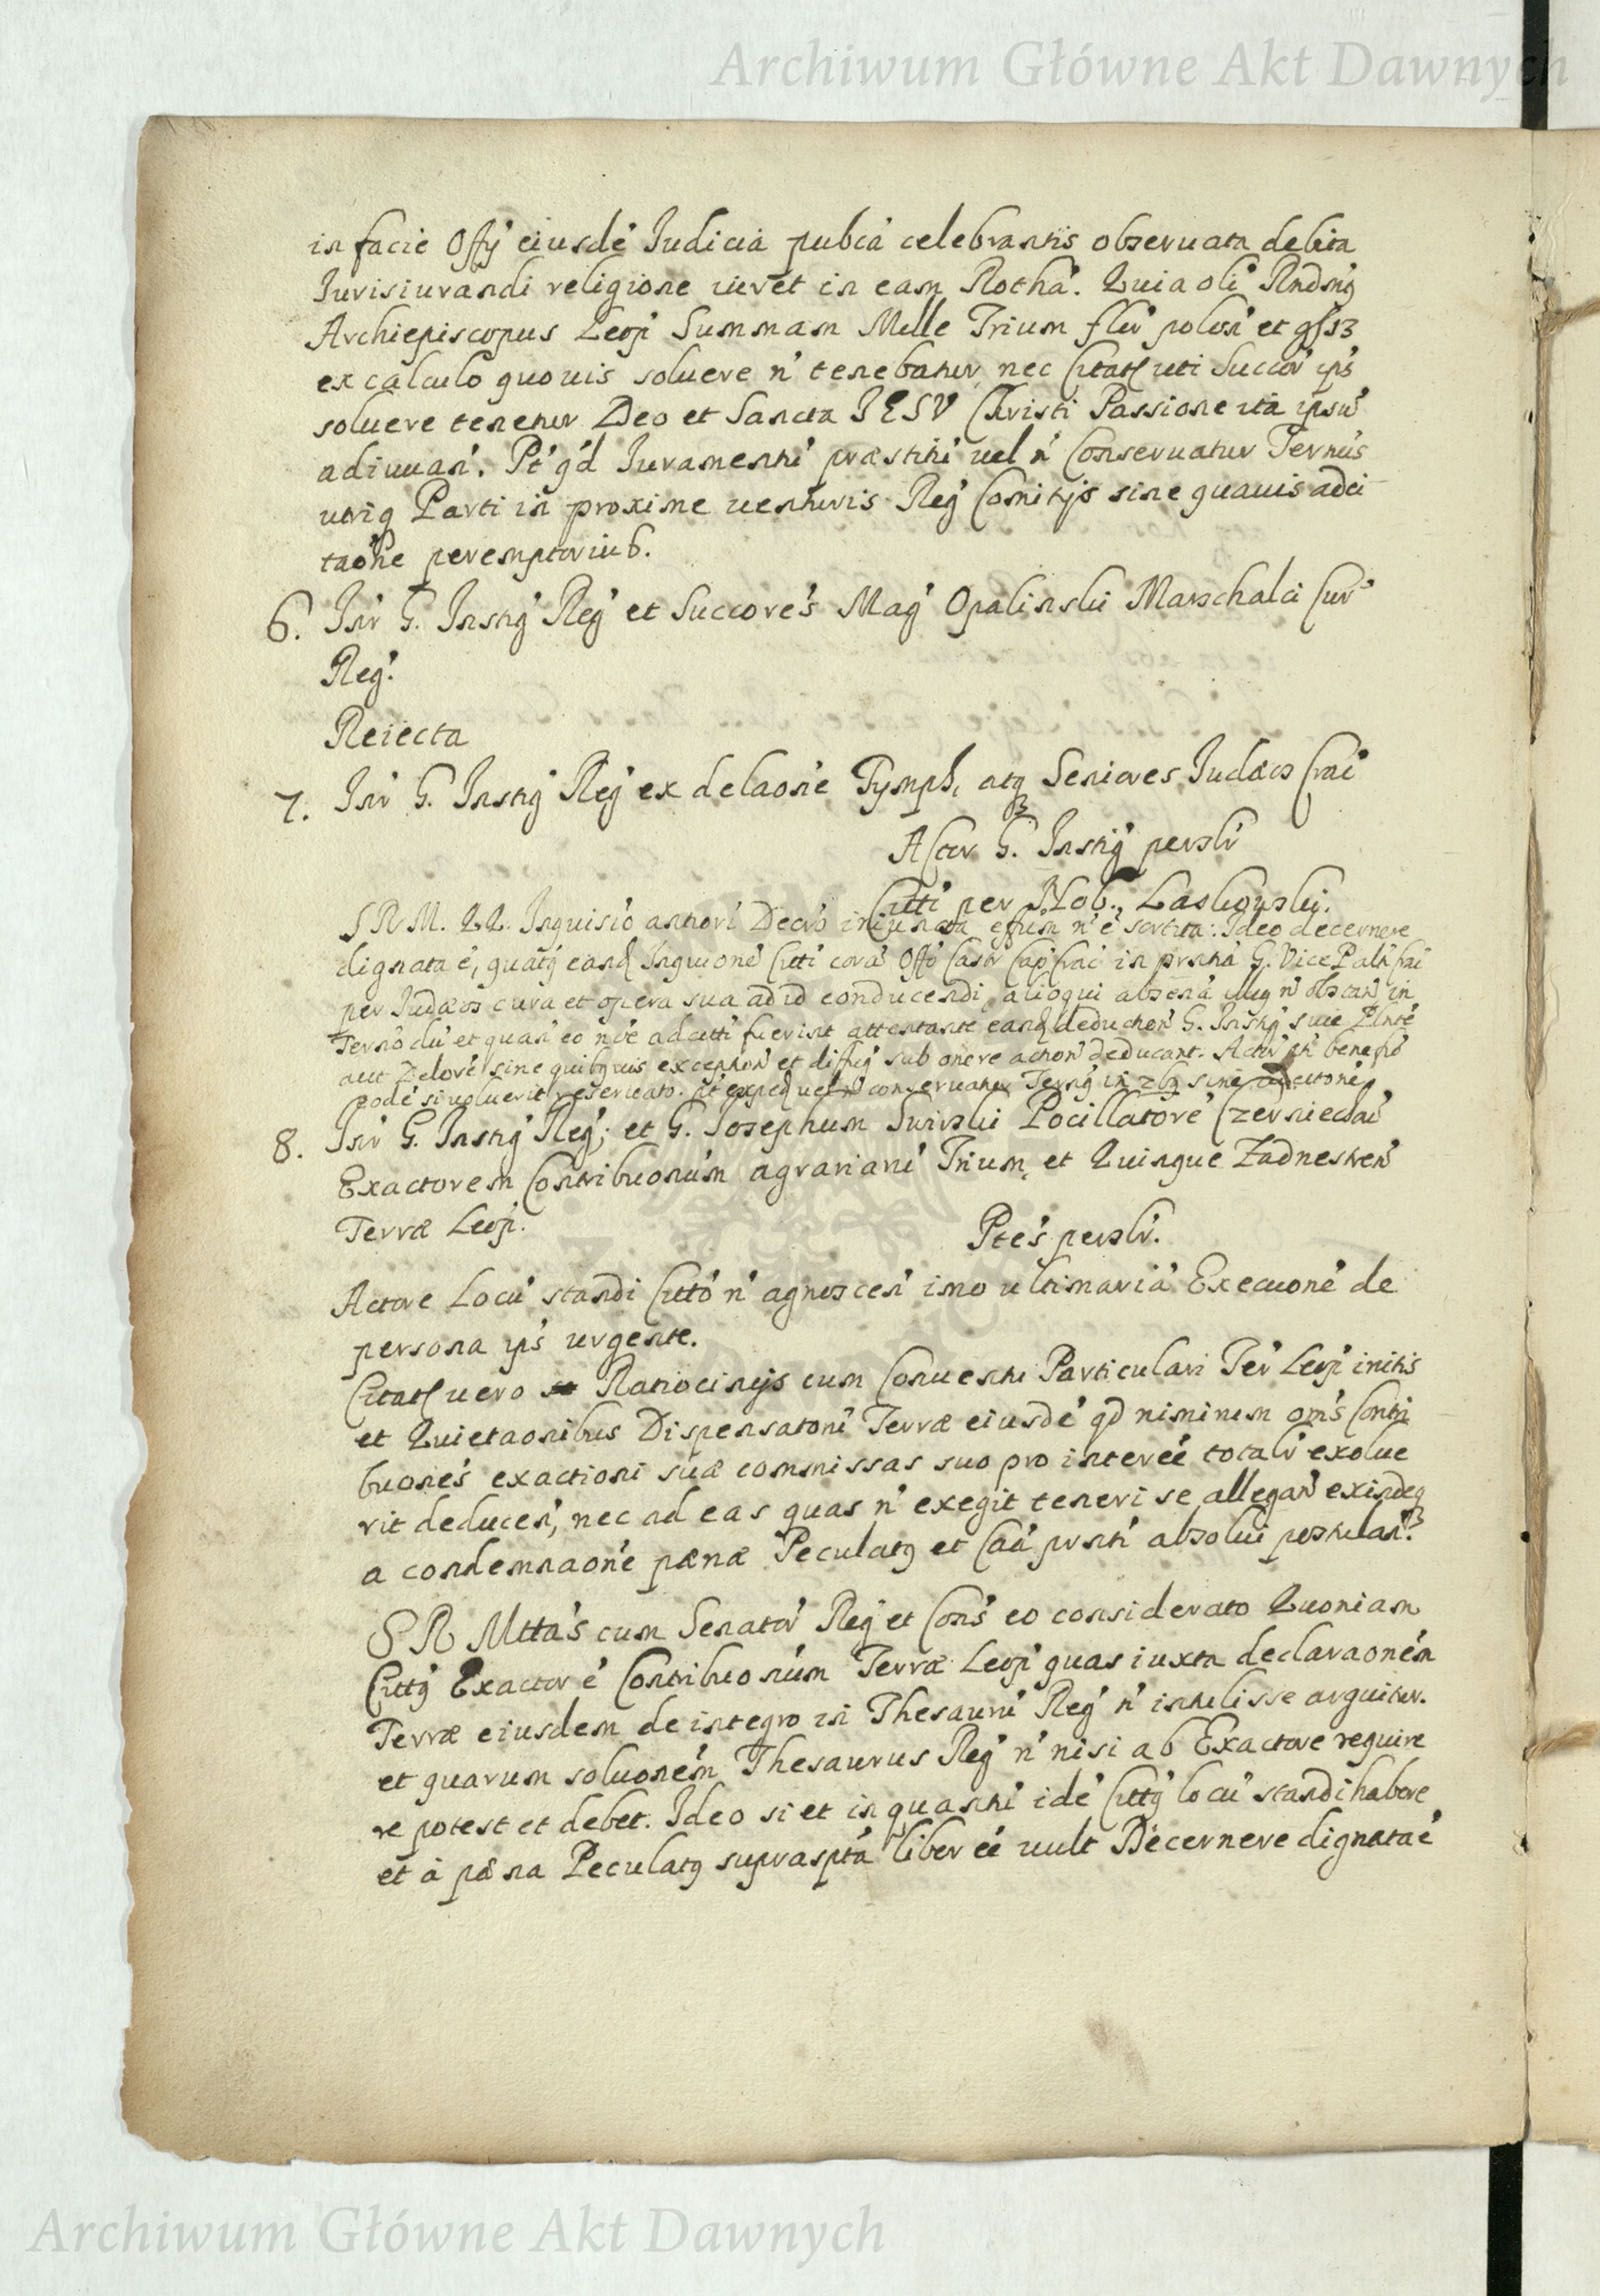 Archiwum Główne Akt Dawnych
in facie Offÿ eiusde' Iudicia publca celebrantis obseruata debita
Iurisiurandi religione iuret in eam Rotha'. Quia oli' Rndmꝯ
Archiepiscopus Leop' Summam Mille Trium flor' polon' et gr 13
ex calculo quouis soluere n' tenebatur nec Citat9 uti Succor' ips'
soluere tenetur Deo et Sancta IESV Christi Passione ita ipsu'
adiuuan'. Pt' q'd Iuramenti' præstiti' uel n' Conseruatur Ternu's
utriq Parti in proxime uenturis Reg' Comitÿs sine quauis adci
tao'ne peremptorius.
6. Intr G. Instig' Reg' et Succore's Mag' Opalinski Marschalci Cur'
Reg'.
Reiecta
7. Intr G. Instig' Reg' ex delaone' Tymph, atq Seniores Iudæos Crac'
Actor G. Instig' personlr
Citti' per Nob. Laskowski.
S R M. QQ. Inquisi'o anteori' Decr'o iniuncta effum n' e' sortita. Ideo decernere
dignata e', quatꝯ eand Inquione' Citti cora' Offo' Castr Cap' Crac' in prntia G. Vice Palat' Crac'
per Iudæos cura et opera sua ad id conducendi, alioqui absentia illiꝯ n' obstan' in
Termo' du' et quan' eo no'ie adcitti fuerint attentante eand deduction' G. Instig' siue Plnte'
aut Delore' sine quibuuis exception' et diffug' sub onere action' deducant. Actor' ptr' benefi'o
eode' si uoluerit reseruato. Pt' exped uel n' conseruatur Terng' in sine adcitone'
8. Intr G. Instig' Reg'; et G. Iosephum Swirski Pocillatore' Czerniechou'
Exactorem Contribuonu'm agrariaru' Trium, et Quinque Zadnestren'
Terræ Leop'.
Pte's personlr.
Actore Locu' standi Citto' n' agnoscen' imo ultimaria' Execuone' de
persona ips' urgente.
Citat9 uero Ratiocinÿs cum Conuentu Particulari Ter' Leop' initis
et Quietaonibus Dispensatoru' Terræ eiusde' qd niminum om's Contri
buone's exactioni suæ commissas suo pro intere'e totalr exolue
rit deducen', nec ad eas quas n' exegit teneri se allegan' exindeq
a condemnaone' pænæ Peculatꝯ et Ca'a' prnti' absolui postulan'.
S R Mtta's cum Senator' Reg' et Cons' eo considerato Quoniam
Cittꝯ Exactor e' Contribuonu'm Terræ Leop' quas iuxta declaraone'm
Terræ eiusdem de integro in Thesauru' Reg' n' intulisse arguitur.
et quarum soluone'm Thesaurus Reg' n' nisi ab Exactore require
re potest et debet. Ideo si et in quantu' ide' Cittꝯ locu' standi habere
et a pæna Peculatꝯ suprascpta' liber e'e uult Decernere dignata e'
Archiwum Główne Akt Dawnych